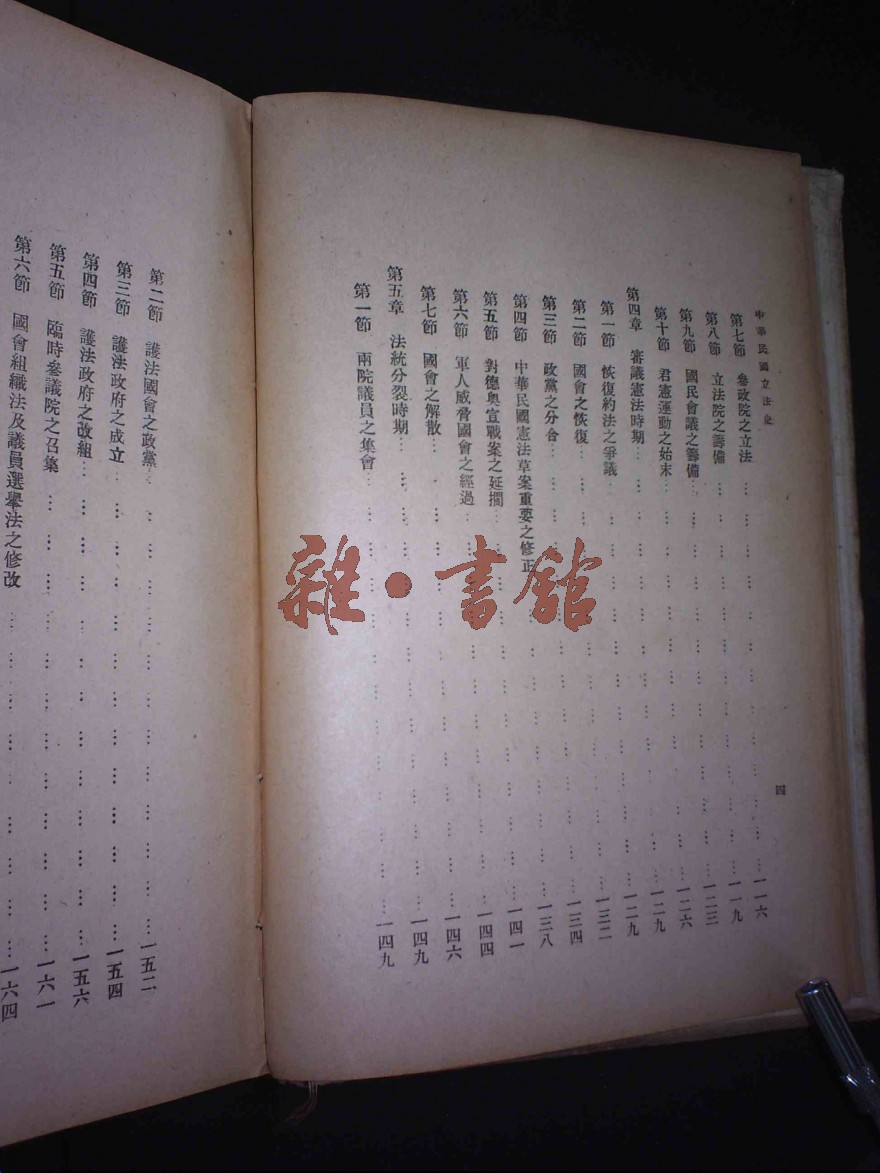 中華民國立法史
四
第七節 參政院之立法 … … … … … 一一六
第八節 立法院之籌備 … … … … … 一一九
第九節 國民會議之籌備 … … … … … 一二三
第十節 君憲運動之始末 … … … … … 一二六
第四章 審議憲法時期 … … … … … 一二九
第一節 恢復約法之爭議 … … … … … 一二九
第二節 國會之恢復 … … … … … 一三二
第三節 政黨之分合 … … … … … 一三四
第四節 中華民國憲法草案重要之修正 … … … … … 一三八
第五節 對德奧宣戰案之延擱 … … … … … 一四一
第六節 軍人威脅國會之經過 … … … … … 一四四
第七節 國會之解散 … … … … … 一四六
第五章 法統分裂時期 … … … … … 一四九
第一節 兩院議員之集會 … … … … … 一四九
第二節 護法國會之政黨 … … … … … 一五二
第三節 護法政府之成立 … … … … … 一五四
第四節 護法政府之改組 … … … … … 一五六
第五節 臨時參議院之召集 … … … … … 一六一
第六節 國會組織法及議員選舉法之修改 … … … … … 一六四
雜·書館